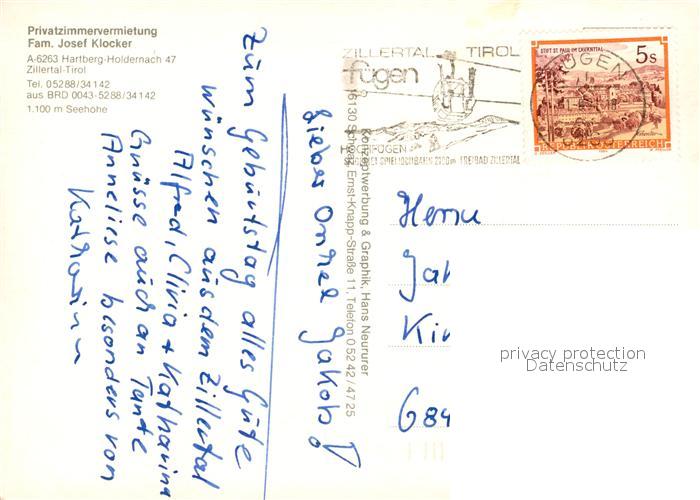 Privatzimmervermietung
Fam. Josef Klocker
A-6263 Hartberg-Holdernach 47
Zillertal-Tirol
Tel. 05288/34142
aus BRD 0043-5288/34142
1.100 m Seehöhe
Lieber Onkel Jakob!
Zum Geburtstag alles Gute
wünschen aus dem Zillertal
Alfred, Clivia + Katharina
Grüsse auch an Tante
Anneliese besonders von
Katharina
Konzeptwerbung & Graphik, Hans Neururer
6130 Schwaz, Ernst-Knapp-Straße 11, Telefon 0 52 42 / 47 25
ZILLERTAL TIROL
fügen
HOCHFÜGEN
SPIELJOCHBAHN 2100m FREIBAD ZILLERTAL
STIFT ST. PAUL IM LAVANTTAL
5S
REPUBLIK ÖSTERREICH
FÜGEN
Herrn
Jak
Kir
684
privacy protection
Datenschutz